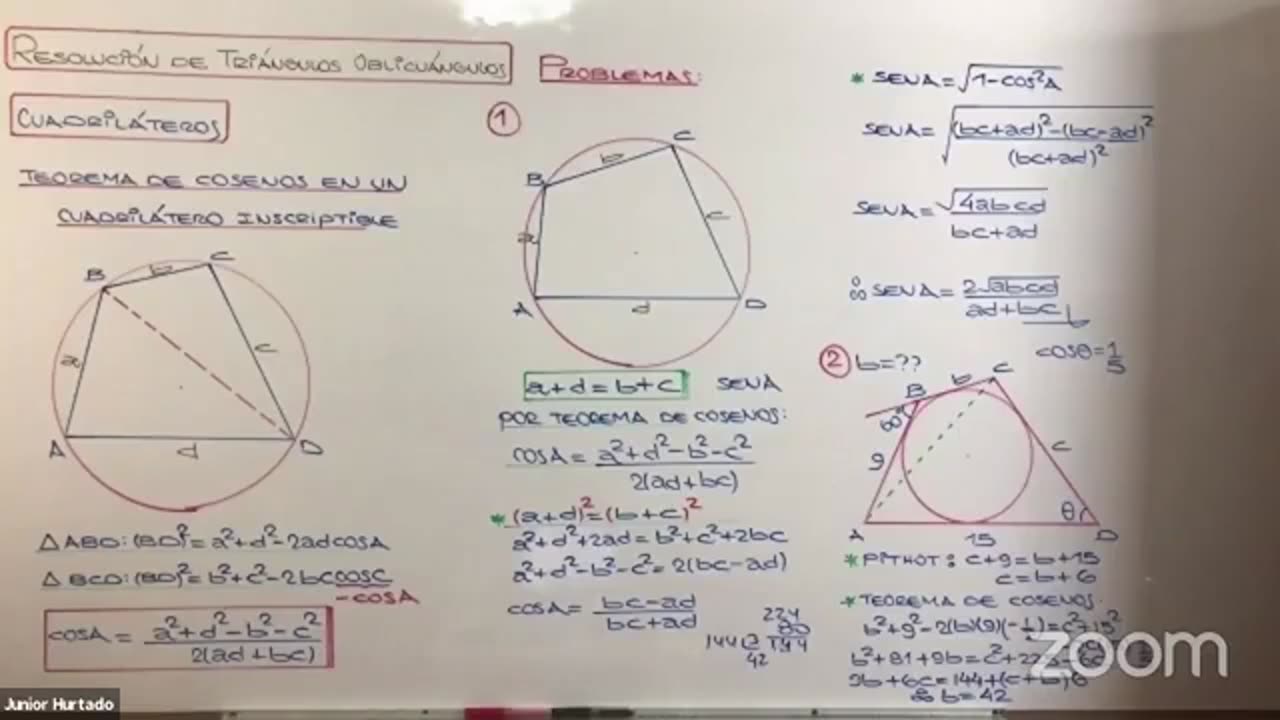 RESOLUCIÓN DE TRIÁNGULOS OBLICUÁNGULOS
CUADRILÁTEROS
TEOREMA DE COSENOS EN UN
CUADRILÁTERO INSCRIPTIBLE
B
b
C
a
c
A
d
D
△ABD: (BD)²=a²+d²-2adcosA
△BCD: (BD)²=b²+c²-2bccosC
-cosA
cosA = a²+d²-b²-c² / 2(ad+bc)
PROBLEMAS:
1
B
b
C
a
c
A
d
D
a+d=b+c SENA
POR TEOREMA DE COSENOS:
cosA = a²+d²-b²-c² / 2(ad+bc)
* (a+d)²=(b+c)²
a²+d²+2ad=b²+c²+2bc
a²+d²-b²-c²=2(bc-ad)
cosA = bc-ad / bc+ad
* SENA=√1-cos²A
SENA=√(bc+ad)²-(bc-ad)² / (bc+ad)²
SENA=√4abcd / bc+ad
SENA=2√abcd / ad+bc
2 b=??
cosθ=1/5
B
b
C
60°
9
c
A
15
θ
D
* PITHOT: c+9=b+15
c=b+6
* TEOREMA DE COSENOS:
b²+9²-2(b)(9)(-½)=c²+15²
b²+81+9b=c²+225-6c
9b+6c=144+(c+b)6
b=42
zoom
Junior Hurtado